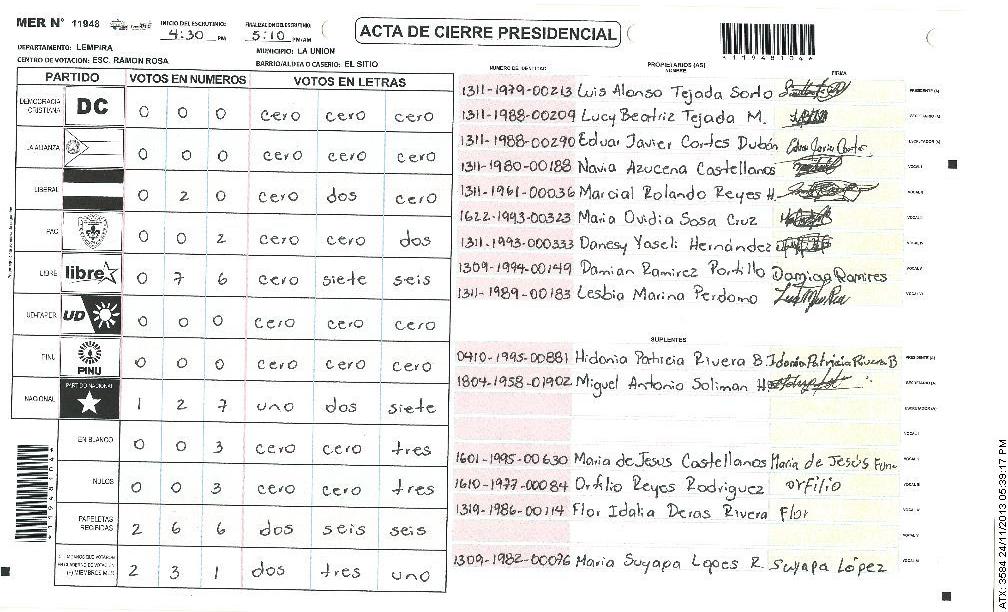 MER N° 11948
INICIO DEL ESCRUTINIO: 4:30 PM
FINALIZACION DEL ESCRUTINIO: 5:10 PM/AM
ACTA DE CIERRE PRESIDENCIAL
DEPARTAMENTO: LEMPIRA
MUNICIPIO: LA UNION
CENTRO DE VOTACION: ESC. RAMON ROSA
BARRIO/ALDEA O CASERIO: EL SITIO
PARTIDO VOTOS EN NUMEROS VOTOS EN LETRAS
DEMOCRACIA CRISTIANA DC 0 0 0 cero cero cero
LA ALIANZA 0 0 0 cero cero cero
LIBERAL 0 2 0 cero dos cero
PAC 0 0 2 cero cero dos
LIBRE libre 0 7 6 cero siete seis
UD-FAPER UD 0 0 0 cero cero cero
PINU PINU 0 0 0 cero cero cero
NACIONAL PARTIDO NACIONAL 1 2 7 uno dos siete
EN BLANCO 0 0 3 cero cero tres
NULOS 0 0 3 cero cero tres
PAPELETAS RECIBIDAS 2 6 6 dos seis seis
CIUDADANOS QUE VOTARON EN CUADERNO DE VOTACION (+) MIEMBROS MER 2 3 1 dos tres uno
NUMERO DE IDENTIDAD PROPIETARIOS (AS) NOMBRE FIRMA
1311-1979-00213 Luis Alonso Tejada Sorto PRESIDENTE (A)
1311-1988-00209 Lucy Beatriz Tejada M. SECRETARIO (A)
1311-1988-00290 Eduar Javier Cortes Dubón ESCRUTADOR (A)
1311-1980-00188 Navia Azucena Castellanos VOCAL I
1311-1961-00036 Marcial Rolando Reyes H. VOCAL II
1622-1993-00323 Maria Ovidia Sosa Cruz VOCAL III
1311-1993-000333 Danesy Yaseli Hernández VOCAL IV
1309-1994-00149 Damian Ramirez Portillo Damian Ramires VOCAL V
1311-1989-00183 Lesbia Marina Perdomo VOCAL VI
SUPLENTES
0410-1995-00881 Hidonia Patricia Rivera B Idonia Patricia Rivera B PRESIDENTE (A)
1804-1958-01902 Miguel Antonio Soliman H. SECRETARIO (A)
ESCRUTADOR (A)
VOCAL I
1601-1995-00630 Maria de Jesus Castellanos Maria de Jesús
1610-1977-00084 Orfilio Reyes Rodriguez orfilio
1319-1986-00114 Flor Idalia Deras Rivera Flor
1309-1982-00076 Maria Suyapa Lopes R. Suyapa López
119481046
ATX: 3584 24/11/2013 05:39:17 PM